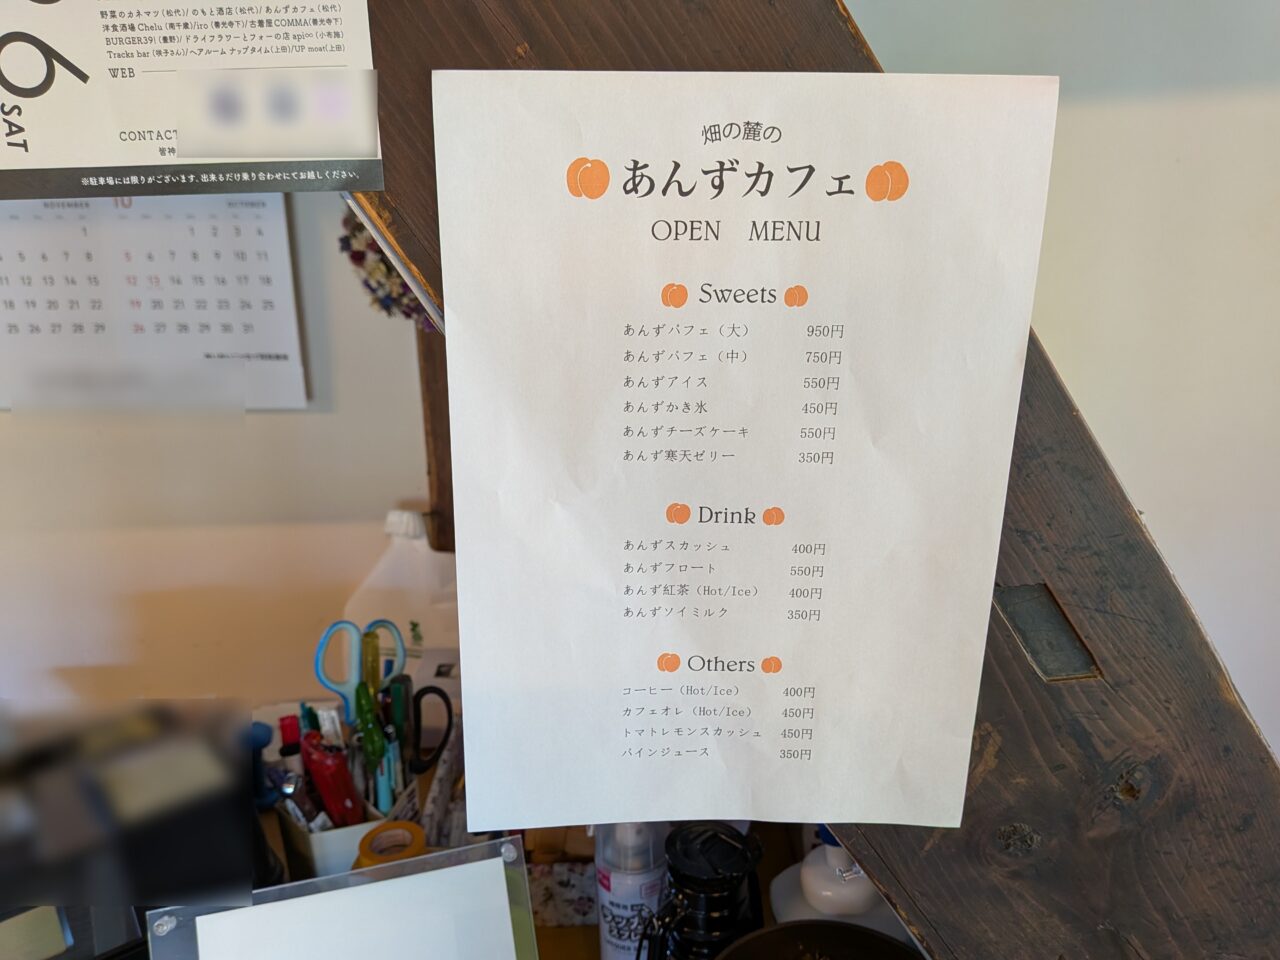 野菜のカネマツ(松代)/のもと酒店(松代)/あんずカフェ(松代)
洋食酒場 Chelu(南千歳)/iro(善光寺下)/古着屋COMMA(善光寺下)
BURGER39!(豊野)/ドライフラワーとフォーの店 api∞(小布施)
Tracks bar(咲子さん)/ヘアルーム ナップタイム(上田)/UP moat(上田)
WEB
6
SAT
CONTACT
皆神
※駐車場には限りがございます、出来るだけ乗り合わせにてお越しください。
NOVEMBER 10 OCTOBER
1 1 2 3 4
4 5 6 7 8 5 6 7 8 9 10 11
11 12 13 14 15 12 13 14 15 16 17 18
18 19 20 21 22 19 20 21 22 23 24 25
25 26 27 28 29 26 27 28 29 30 31
畑の麓の
あんずカフェ
OPEN MENU
Sweets
あんずパフェ(大) 950円
あんずパフェ(中) 750円
あんずアイス 550円
あんずかき氷 450円
あんずチーズケーキ 550円
あんず寒天ゼリー 350円
Drink
あんずスカッシュ 400円
あんずフロート 550円
あんず紅茶(Hot/Ice) 400円
あんずソイミルク 350円
Others
コーヒー(Hot/Ice) 400円
カフェオレ(Hot/Ice) 450円
トマトレモンスカッシュ 450円
パインジュース 350円